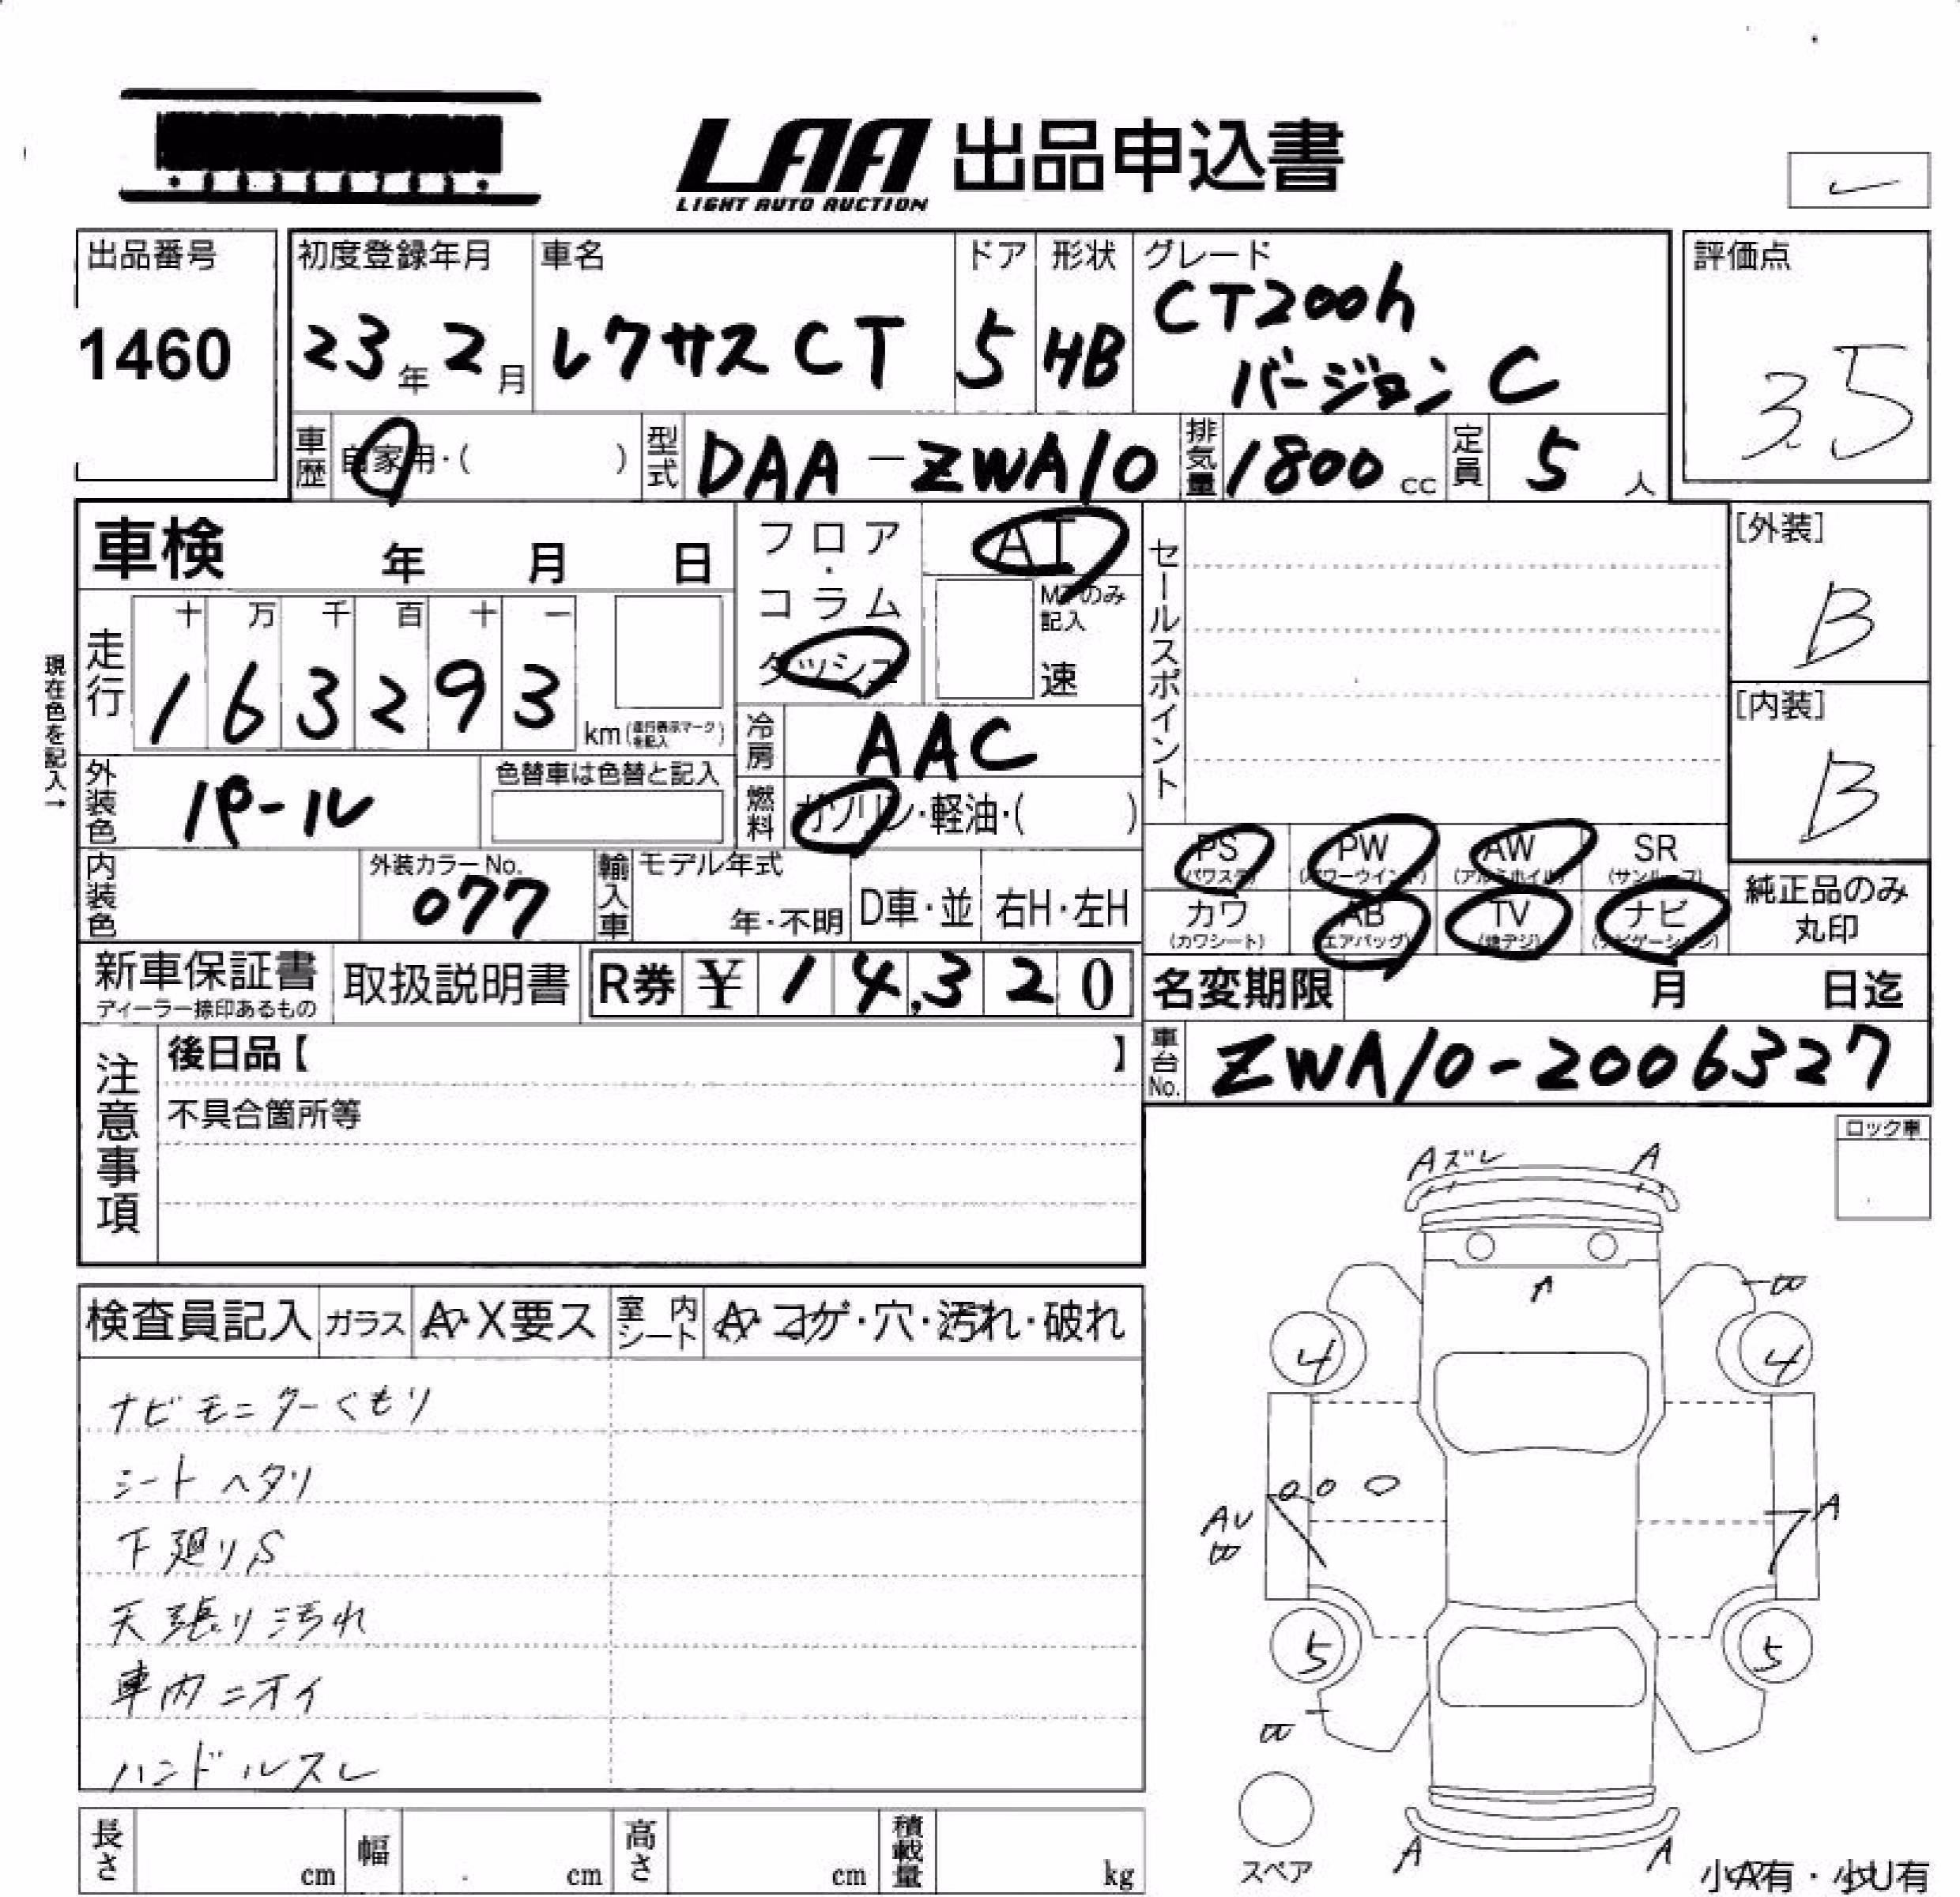 LAA 出品申込書
LIGHT AUTO AUCTION
出品番号
1460
初度登録年月
23年2月
車名
レクサスCT
ドア
5
形状
HB
グレード
CT200h
バージョンC
評価点
3.5
車歴
自家用・( )
型式
DAA-ZWA10
排気量
1800cc
定員
5人
車検 年 月 日
フロア・コラム
ダッシュ
AT
MTのみ記入
速
セールスポイント
[外装]
B
[内装]
B
現在色を記入→
走行
十 万 千 百 十 一
1 6 3 2 9 3
km(走行表示マークを記入)
冷房
AAC
外装色
パール
色替車は色替と記入
燃料
ガソリン・軽油・( )
内装色
外装カラーNo.
077
輸入車
モデル年式
年・不明
D車・並
右H・左H
PS
(パワステ)
PW
(パワーウインド)
AW
(アルミホイル)
SR
(サンルーフ)
カワ
(カワシート)
AB
(エアバッグ)
TV
(地デジ)
ナビ
(ナビゲーション)
純正品のみ
丸印
新車保証書
ディーラー捺印あるもの
取扱説明書
R券 ¥ 14,320
名変期限 月 日迄
車台No.
ZWA10-2006327
注意事項
後日品【 】
不具合箇所等
ロック車
Aズレ A
A
4 4
A
AU
5 5
スペア
A A
小A有・小U有
検査員記入
ガラス
A・X要ス
室内シート
A・コゲ・穴・汚れ・破れ
ナビモニターくもり
シートヘタリ
下廻りS
天張り汚れ
車内ニオイ
ハンドルスレ
長さ cm
幅 cm
高さ cm
積載量 kg